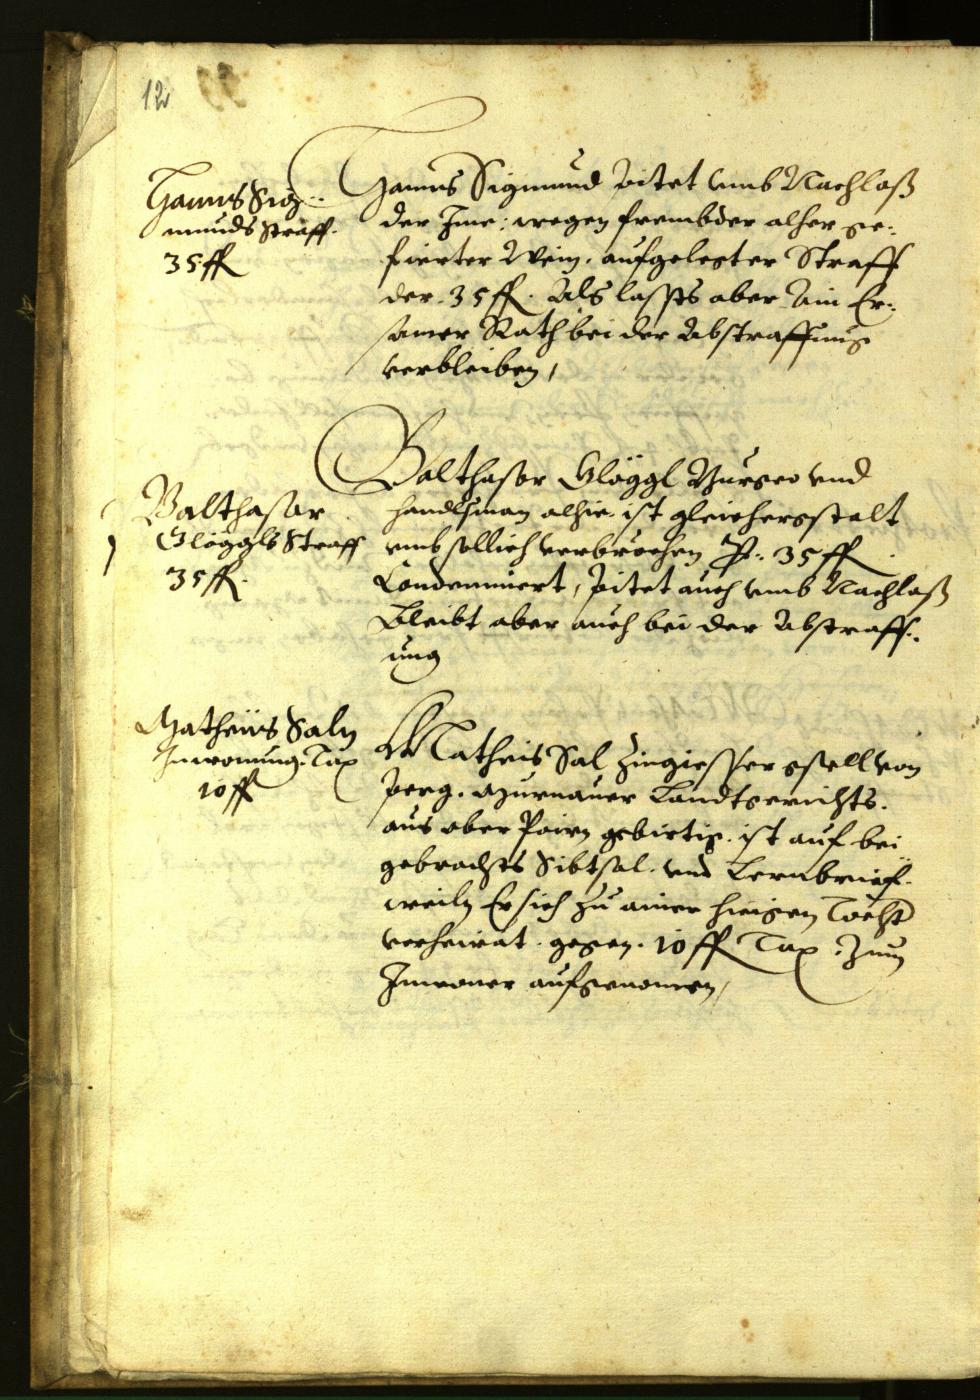 12
Hanns Sig=
munds Straff.
35 ff
Hanns Sigmund Pitet umb Nachlaß
der Ime: wegen frembder alher ge=
fierter Wein. aufgelegter Straff
der. 35 ff. Als lassts aber Ain Er=
samer Rath bei der Abstraffung
verbleiben,
Balthasar
Glöggls Straff
35 ff.
Balthasar Glöggl Burger und
handlsman alhie. ist gleichergestalt
umb sollich verbrechen P: 35 ff
Condemniert, Pitet auch umb Nachlaß
Bleibt aber auch bei der Abstraff=
ung
Matheüs Saln
Inwonung: Tax
10 ff
Matheis Sal Zingiesser gsell von
Perg. Murnauer Landtgerichts.
aus ober Pairn gebirtig. ist auf bei
gebrachts Sibtsal. und Lernbrief.
weiln Er sich zu ainer hiesigen Tocht
verheirat. gegen. 10 ff Tax. Zum
Inwoner aufgenomen,